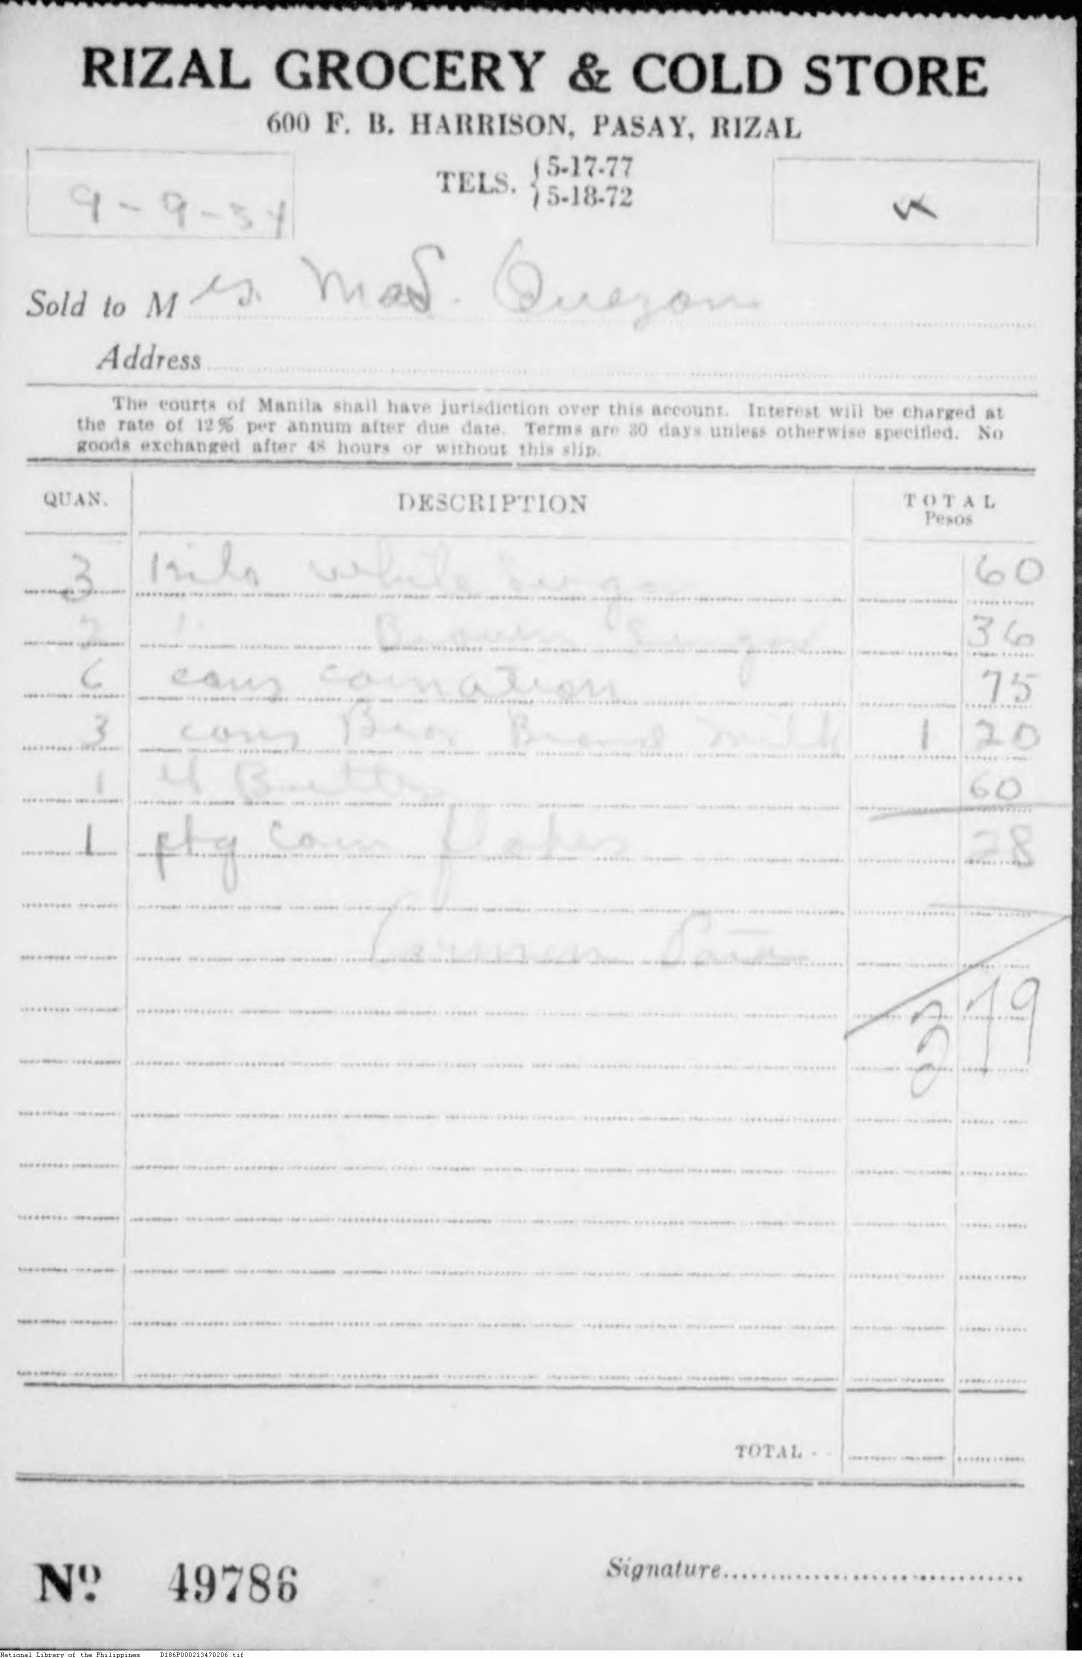 RIZAL GROCERY & COLD STORE
600 F. B. HARRISON, PASAY, RIZAL
TELS. 5-17-77
5-18-72
9-9-34
Sold to Mrs. Quezon
Address
The courts of Manila shall have jurisdiction over this account. Interest will be charged at
the rate of 12% per annum after due date. Terms are 30 days unless otherwise specified. No
goods exchanged after 48 hours or without this slip.
QUAN. DESCRIPTION TOTAL
Pesos
3 Kilo white Sugar 60
2 " Brown Sugar 36
6 cans carnation 75
3 cans Bear Brand milk 1 20
1 Butter 60
1 pkg corn flakes 28
Carmen
3 79
TOTAL
Nº 49786
Signature
National Library of the Philippines D186P000213470206.tif